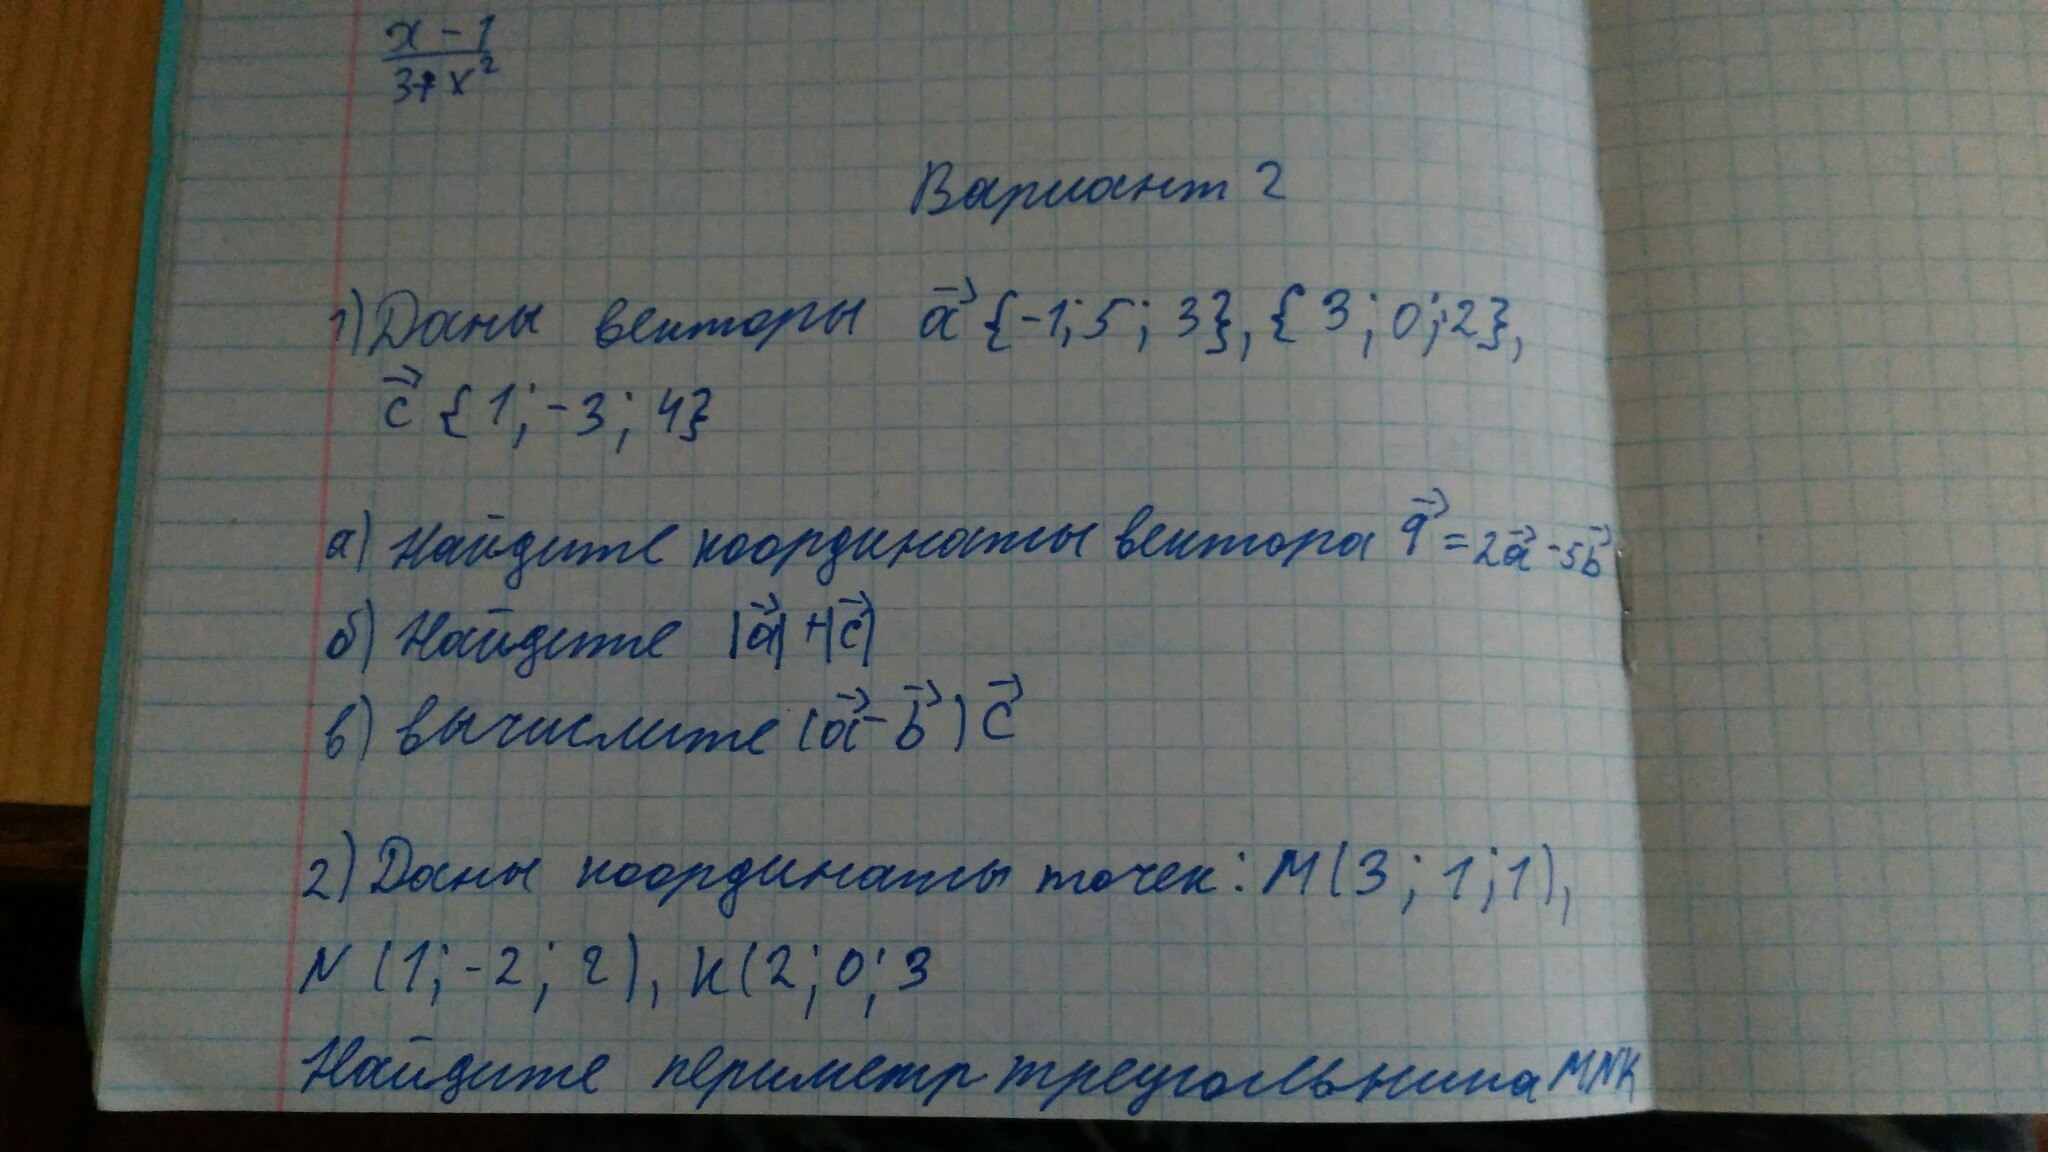 x - 1
3 + x²
Вариант 2
1) Даны векторы a⃗ {-1; 5; 3}, {3; 0; 2},
c⃗ {1; -3; 4}
а) Найдите координаты вектора q⃗ = 2a⃗ - 5b⃗
б) Найдите |a⃗| + |c⃗|
в) вычислите (a⃗ - b⃗) c⃗
2) Даны координаты точек: M(3; 1; 1),
N (1; -2; 2), K(2; 0; 3
Найдите периметр треугольника MNK